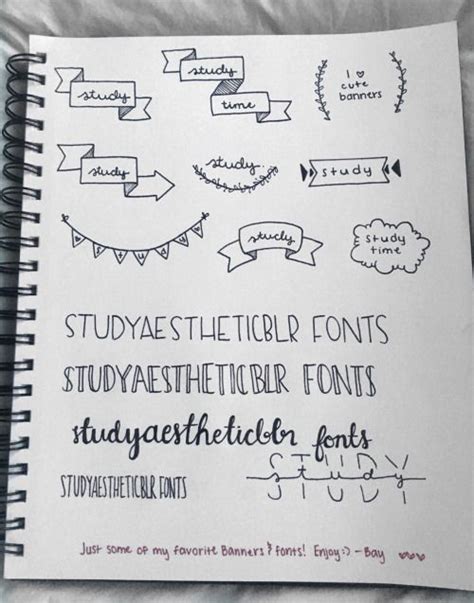 study
study
time
I ♥
cute
banners
study
study
study
study
study
study
time
STUDYAESTHETICBLR FONTS
STUDYAESTHETICBLR FONTS
studyaestheticblr fonts
STUDYAESTHETICBLR FONTS
STUDY
study
Just some of my favorite Banners & fonts! Enjoy :) - Bay ♥♥♥